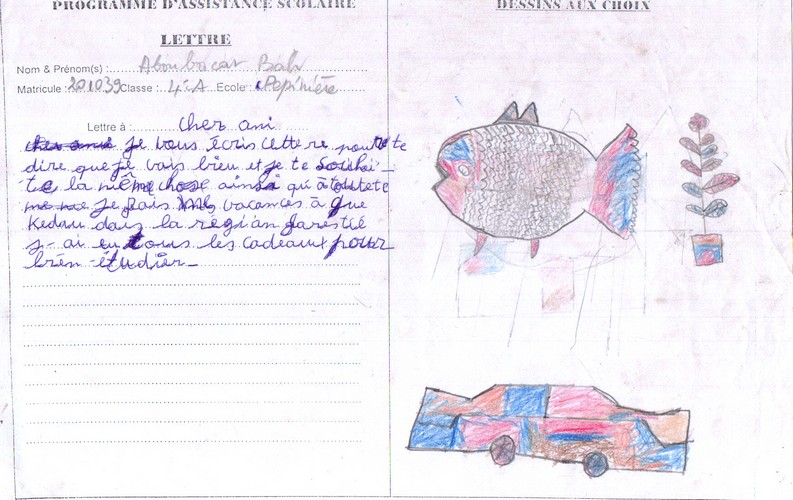 PROGRAMME D'ASSISTANCE SCOLAIRE
LETTRE
Nom & Prénom(s) : Aboubacar Bah
Matricule : 201039 Classe : 4è-A Ecole : Pépinière
Lettre à : Cher ami
je vous écris cette re pour te
dire que je vais bien et je te souhai-
te la même chose ainsi qu'à toute te
je pais mes vacances à Gue
Kedou dans la région forestiè
j-ai eu tous les cadeaux pour
bien-étudier-
DESSINS AUX CHOIX